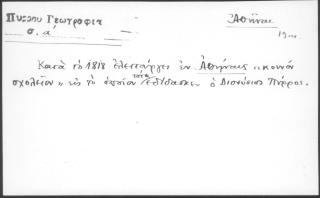 Πύρρου Γεωγραφία
σ. α'
Ἀθῆναι
Κατὰ τὸ 1818 ἐλειτούργει ἐν Ἀθήναις «κοινὸν
σχολεῖον» εἰς τὸ ὁποῖον τότε ἐδίδασκεν ὁ Διονύσιος Πύρρος.